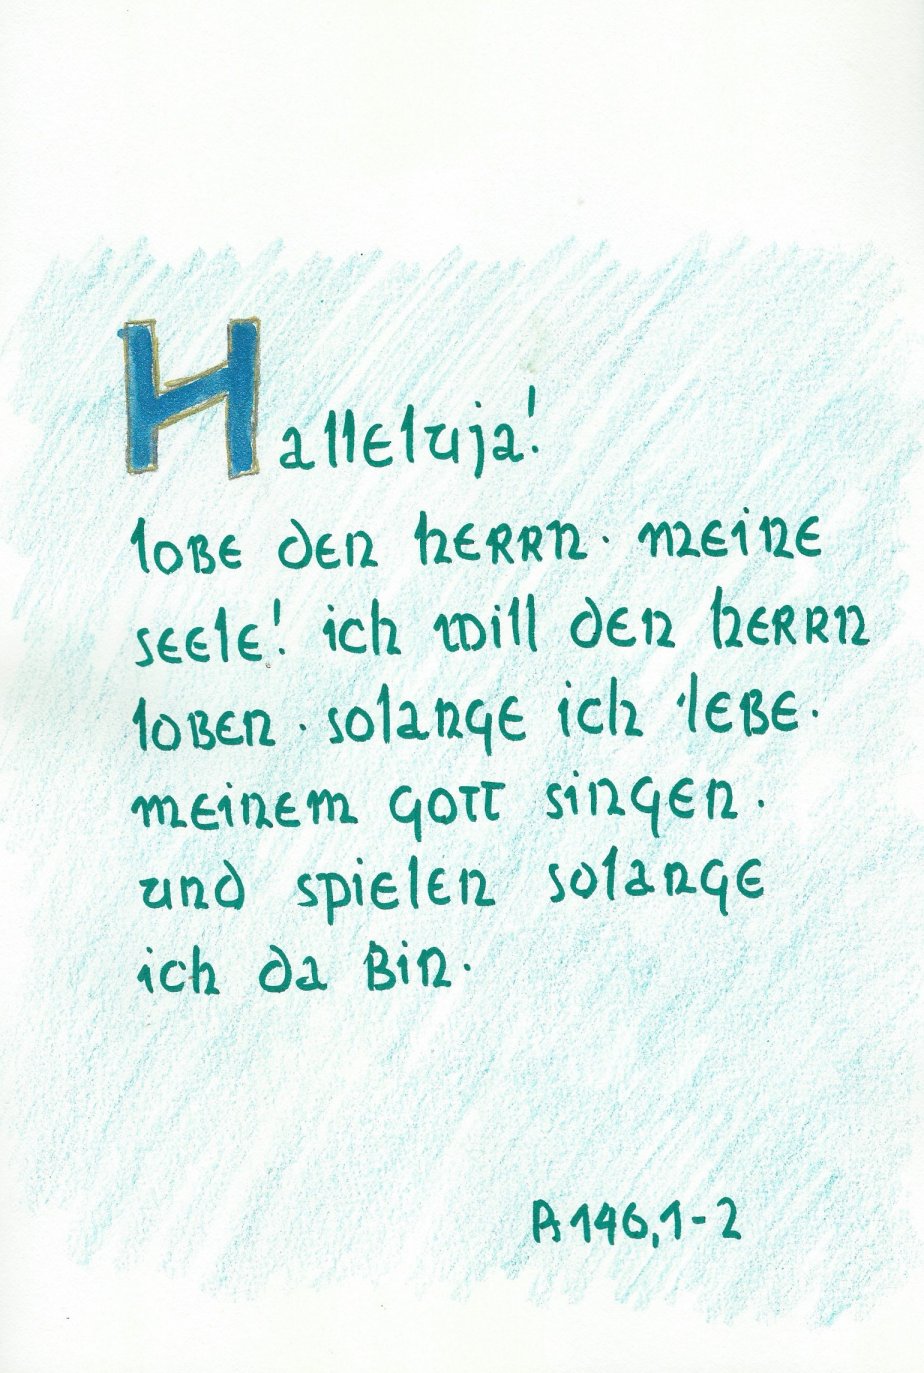 Halleluja!
lobe den herrn · meine
seele! ich will den herrn
loben · solange ich lebe ·
meinem gott singen ·
und spielen solange
ich da bin ·
Ps 146,1-2